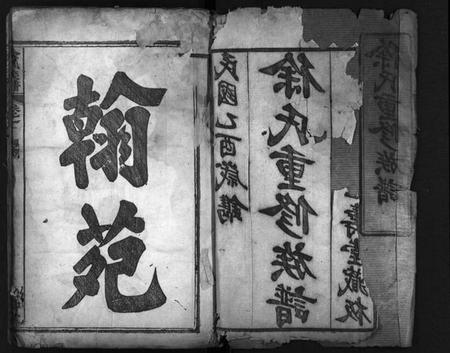 徐氏重修族譜
民國乙酉歲鐫
徐氏重修族譜
壽堂藏板
翰苑